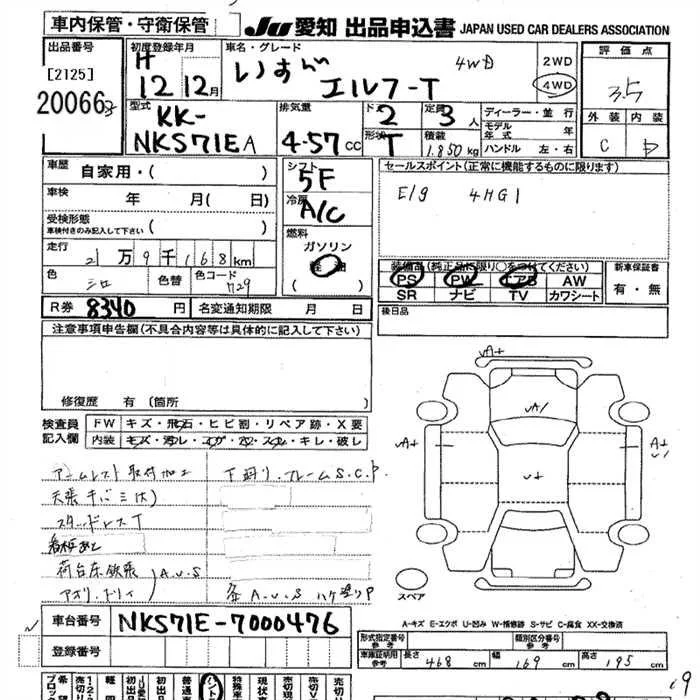 車内保管・守衛保管
JU 愛知 出品申込書 JAPAN USED CAR DEALERS ASSOCIATION
出品番号
[2125]
200663
初度登録年月
H 12年 12月
車名・グレード
いすゞ エルフ-T 4WD
2WD
4WD
評価点
3.5
外装 内装
C D
型式
KK-
NKS71EA
排気量
4.57cc
ドア 2
形状 T
定員 3人
積載 1.850kg
ディーラー・並行
モデル年式 年
ハンドル 左・右
車歴 自家用・( )
車検 年 月( 日)
受検形態
車検付きのみ記入して下さい ( )
走行 2万9千168km
色 シロ 色替 色コード 729
R券 8340円 名変通知期限 月 日
シフト
5F
冷房
A/C
燃料
ガソリン
軽油
( )
セールスポイント(正常に機能するものに限ります)
E/g 4HG1
装備品(純正品に限り○をつけてください)
PS PW エアB AW
SR ナビ TV カワシート
新車保証書
有・無
後日品
注意事項申告欄(不具合内容等は具体的に記入して下さい)
修復歴 有(箇所 )
検査員
記入欄
FW キズ・飛石・ヒビ割・リペア跡・X要
内装 キズ・汚レ・コゲ・穴・スレ・キレ・破レ
下廻り、フレームS.C.P
スタッドレスT
A.U.S
A.U.S ハケ塗りP
車台番号 NKS71E-7000476
登録番号
スペア
A-キズ E-エクボ U-凹み W-補修跡 S-サビ C-腐食 XX-交換済
形式指定番号
参考
類別区分番号
参考
車庫証明用
参考
長さ 468cm 幅 169cm 高さ 195cm